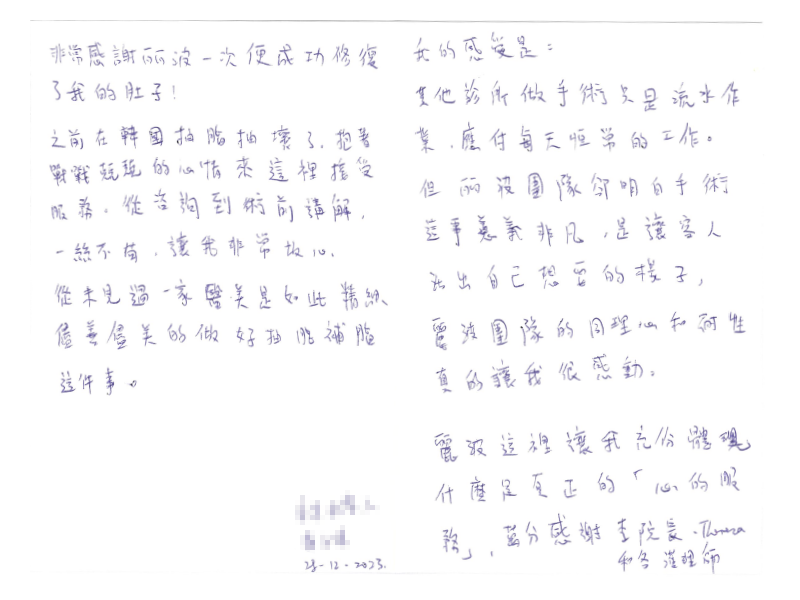 非常感謝丽波一次便成功修復
了我的肚子!
之前在韓國抽脂抽壞了,抱著
戰戰兢兢的心情來這裡接受
服務。從咨詢到術前講解,
一絲不苟,讓我非常放心。
從未見過一家醫美是如此精細、
儘善儘美的做好抽脂補脂
這件事。
28-12-2023.
我的感受是:
其他診所做手術只是流水作
業,應付每天恒常的工作。
但丽波團隊卻明白手術
這事意義非凡,是讓客人
活出自己想要的樣子,
麗波團隊的同理心和耐性
真的讓我很感動。
麗波這裡讓我充份體現
什麼是真正的「心的服
務」,萬分感謝李院長、Theresa
和各護理師